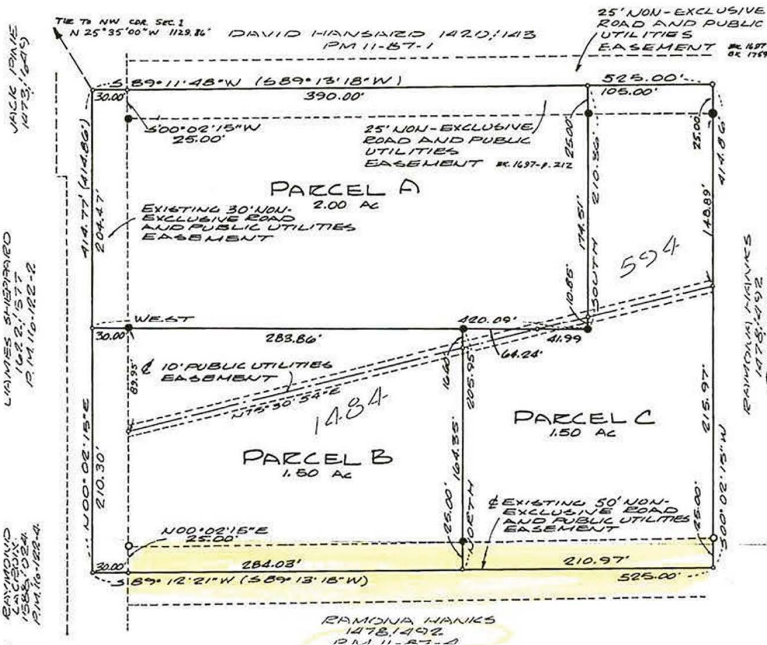 TIE TO NW COR. SEC. 1
N 25°35'00"W 1129.86'
DAVID HANSARD 1420/143
PM 11-87-1
25' NON-EXCLUSIVE
ROAD AND PUBLIC
UTILITIES
EASEMENT
JACK PINE
1473/649
S 89°11'48"W (S89°13'18"W)
525.00'
30.00'
390.00'
105.00'
S00°02'15"W
25.00'
25' NON-EXCLUSIVE
ROAD AND PUBLIC
UTILITIES
EASEMENT BK. 1697-P. 212
25.00'
210.36'
25.00'
414.86'
PARCEL A
2.00 AC
414.77' (414.86')
204.47'
EXISTING 30' NON-
EXCLUSIVE ROAD
AND PUBLIC UTILITIES
EASEMENT
174.51'
10.85'
SOUTH
148.89'
594
JAMES SHEPPARD
1622/577
P.M. 16-122-2
RAMONA HANKS
1478/492
WEST
420.09'
30.00'
283.86'
41.99
64.24'
89.95'
℄ 10' PUBLIC UTILITIES
EASEMENT
N75°30'54"E
1484
16.60'
205.95'
164.35'
25.00'
NORTH
PARCEL C
1.50 AC
215.97'
PARCEL B
1.50 AC
N00°02'15"E
210.30'
℄ EXISTING 50' NON-
EXCLUSIVE ROAD
AND PUBLIC UTILITIES
EASEMENT
25.00'
S00°02'15"W
N00°02'15"E
25.00'
30.00'
284.03'
210.97'
S 89°12'21"W (S89°13'18"W)
525.00'
RAYMOND
P.M. 16-122-4
RAMONA HANKS
1478/492
PM 11-87-4